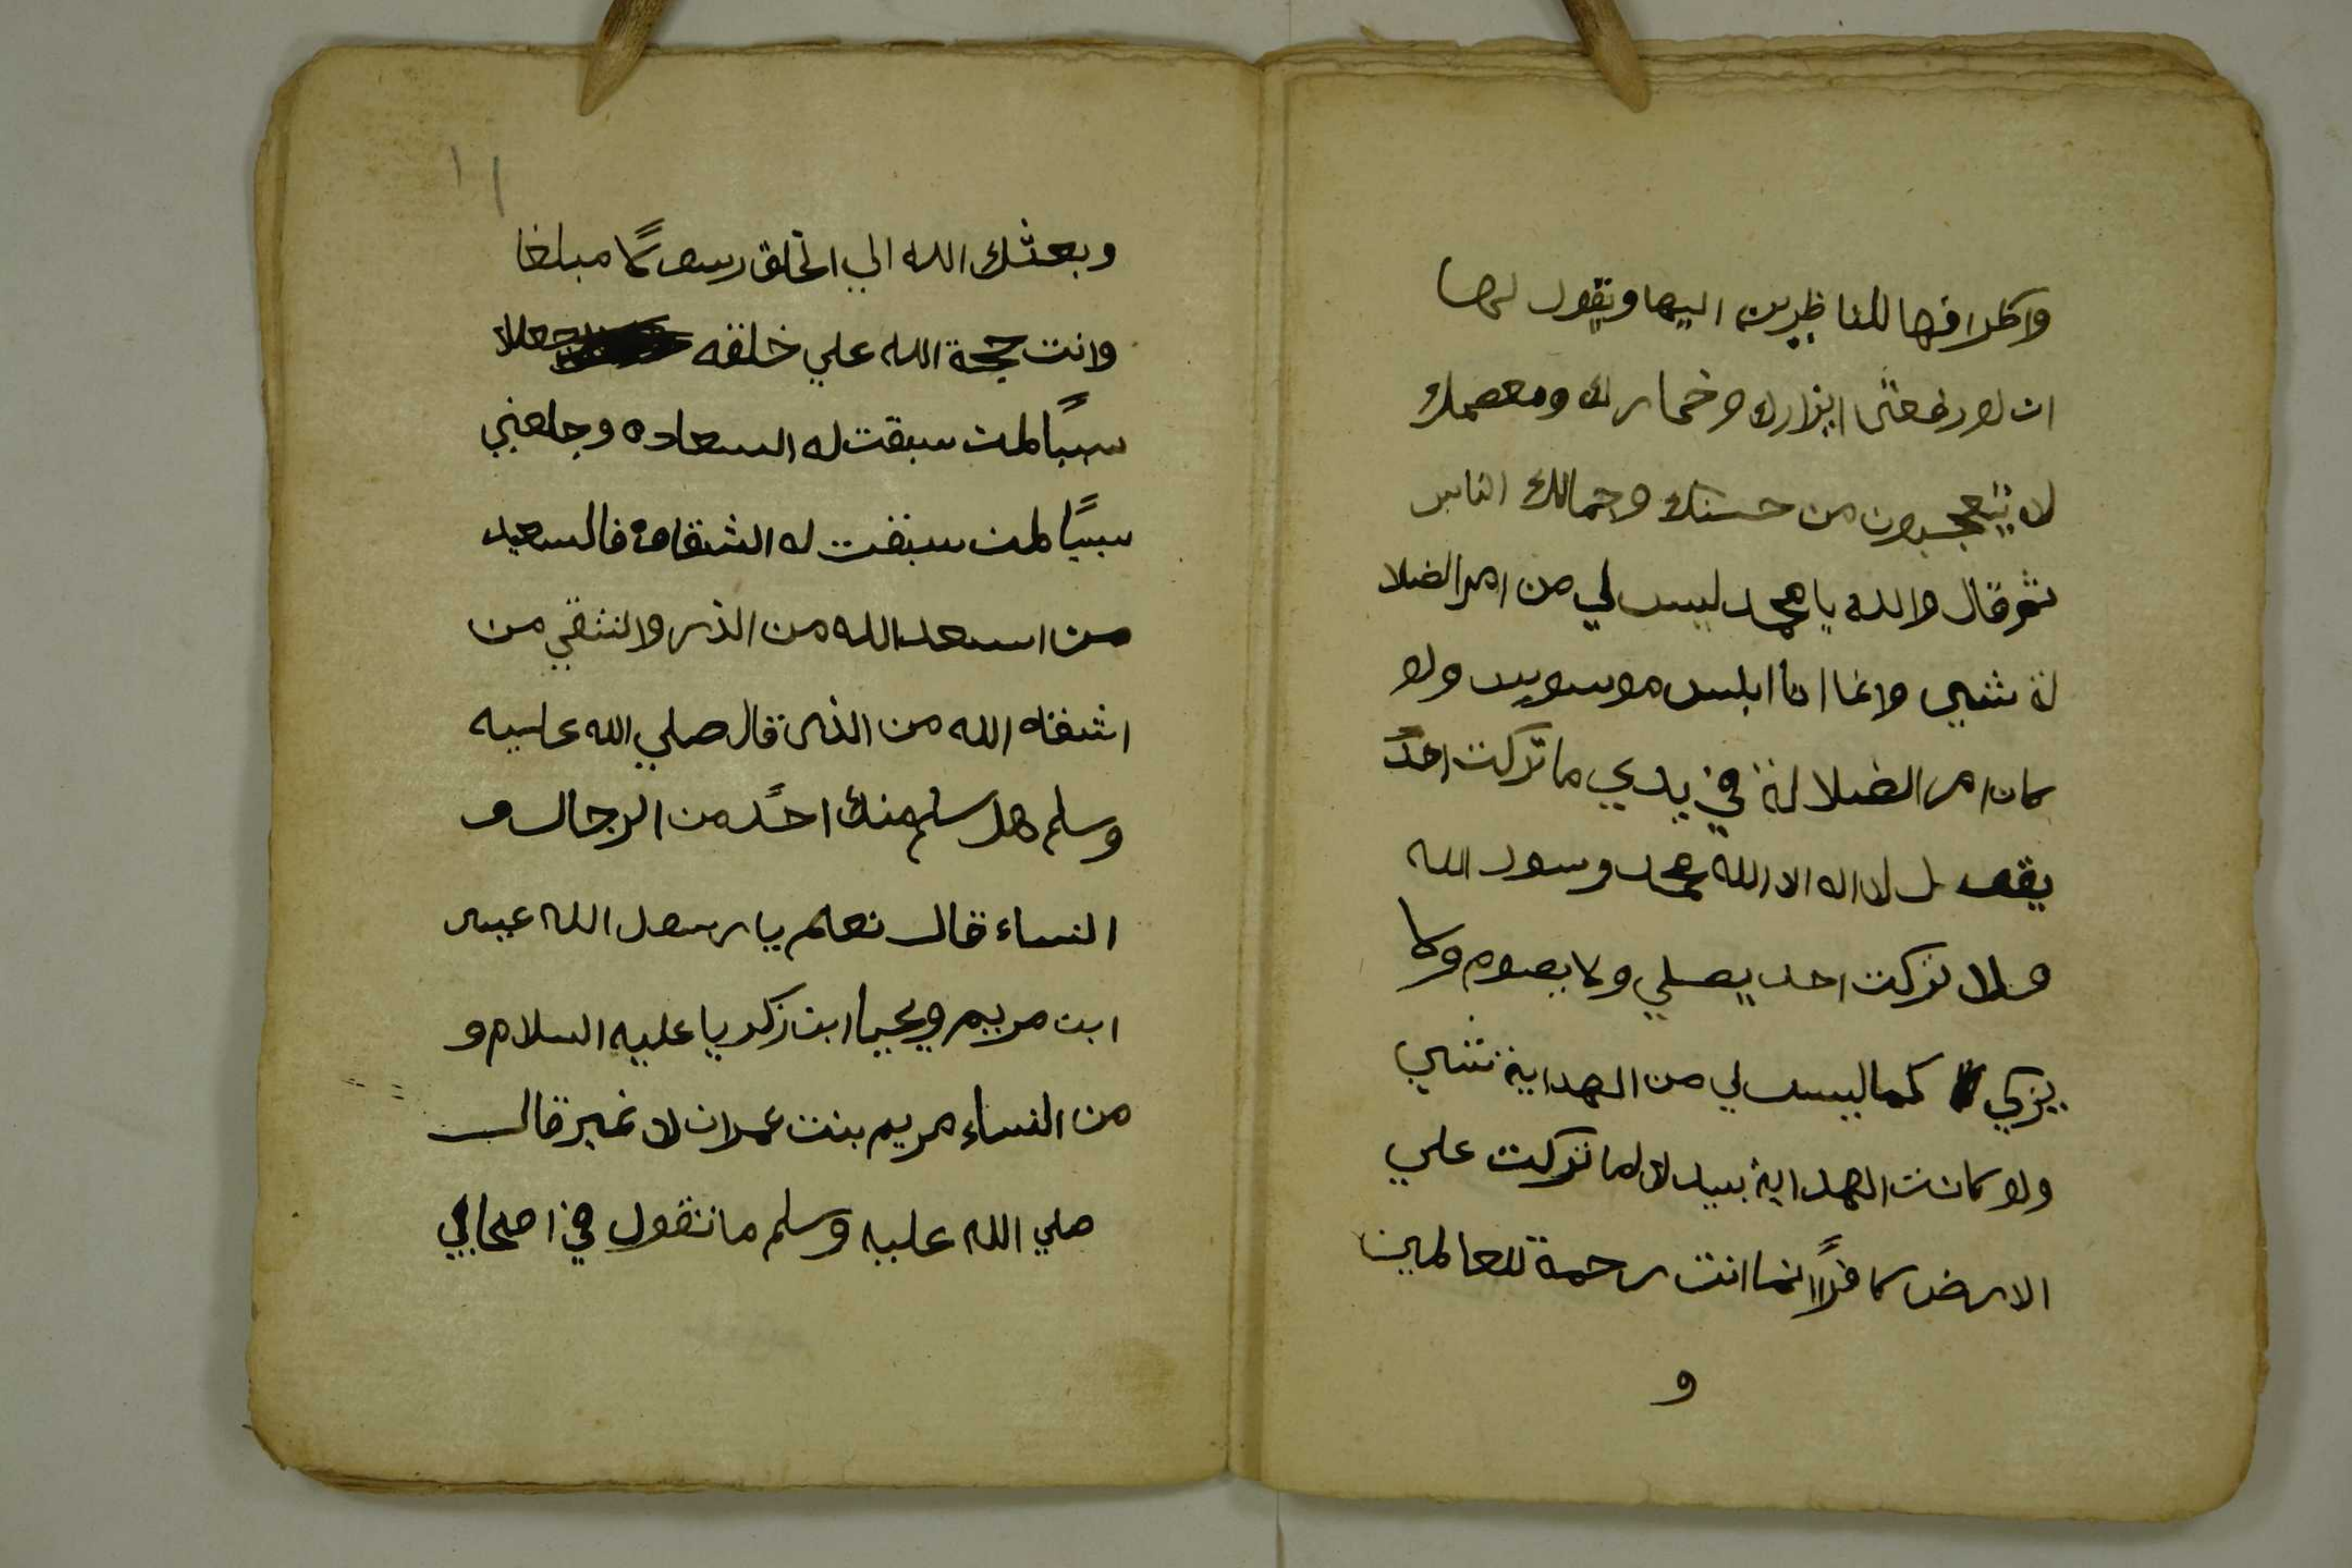 واطرافها للناظرين اليها ويقول لها
ان لو رفعتى ايزارك وخمارك ومعصمك
لا يتعجبون من حسنك وجمالك الناس
ثم قال والله يا محمد ليس لي من امر الضلا
لة شيي وانما انا ابلس موسويس ولو
كان امر الضلالة في يدي ما تركت احدً
يقول لا اله الا الله محمد رسول الله
ولا تركت احد يصلي ولا يصوم ولا
يزكي كما ليس لي من الهداية شيي
ولو كانت الهداية بيدك لما تركت علي
الارض كافرًا انما انت رحمة للعالمين
و
١١
وبعثك الله الي الخلق رسولًا مبلغا
وانت حجة الله علي خلقه وجعلك
سببًا لمن سبقت له السعاده وجلعني
سببًا لمن سبقت له الشقاوة فالسعيد
من اسعد الله من الذر والشقي من
اشقاه الله من الذر قال صلي الله عليه
وسلم هل سلم منك احدً من الرجال و
النساء قال نعم يا رسول الله عيسى
ابن مريم ويحيا ابن زكريا عليه السلام و
من النساء مريم بنت عمران لا غير قال
صلي الله عليه وسلم ما تقول في اصحابي